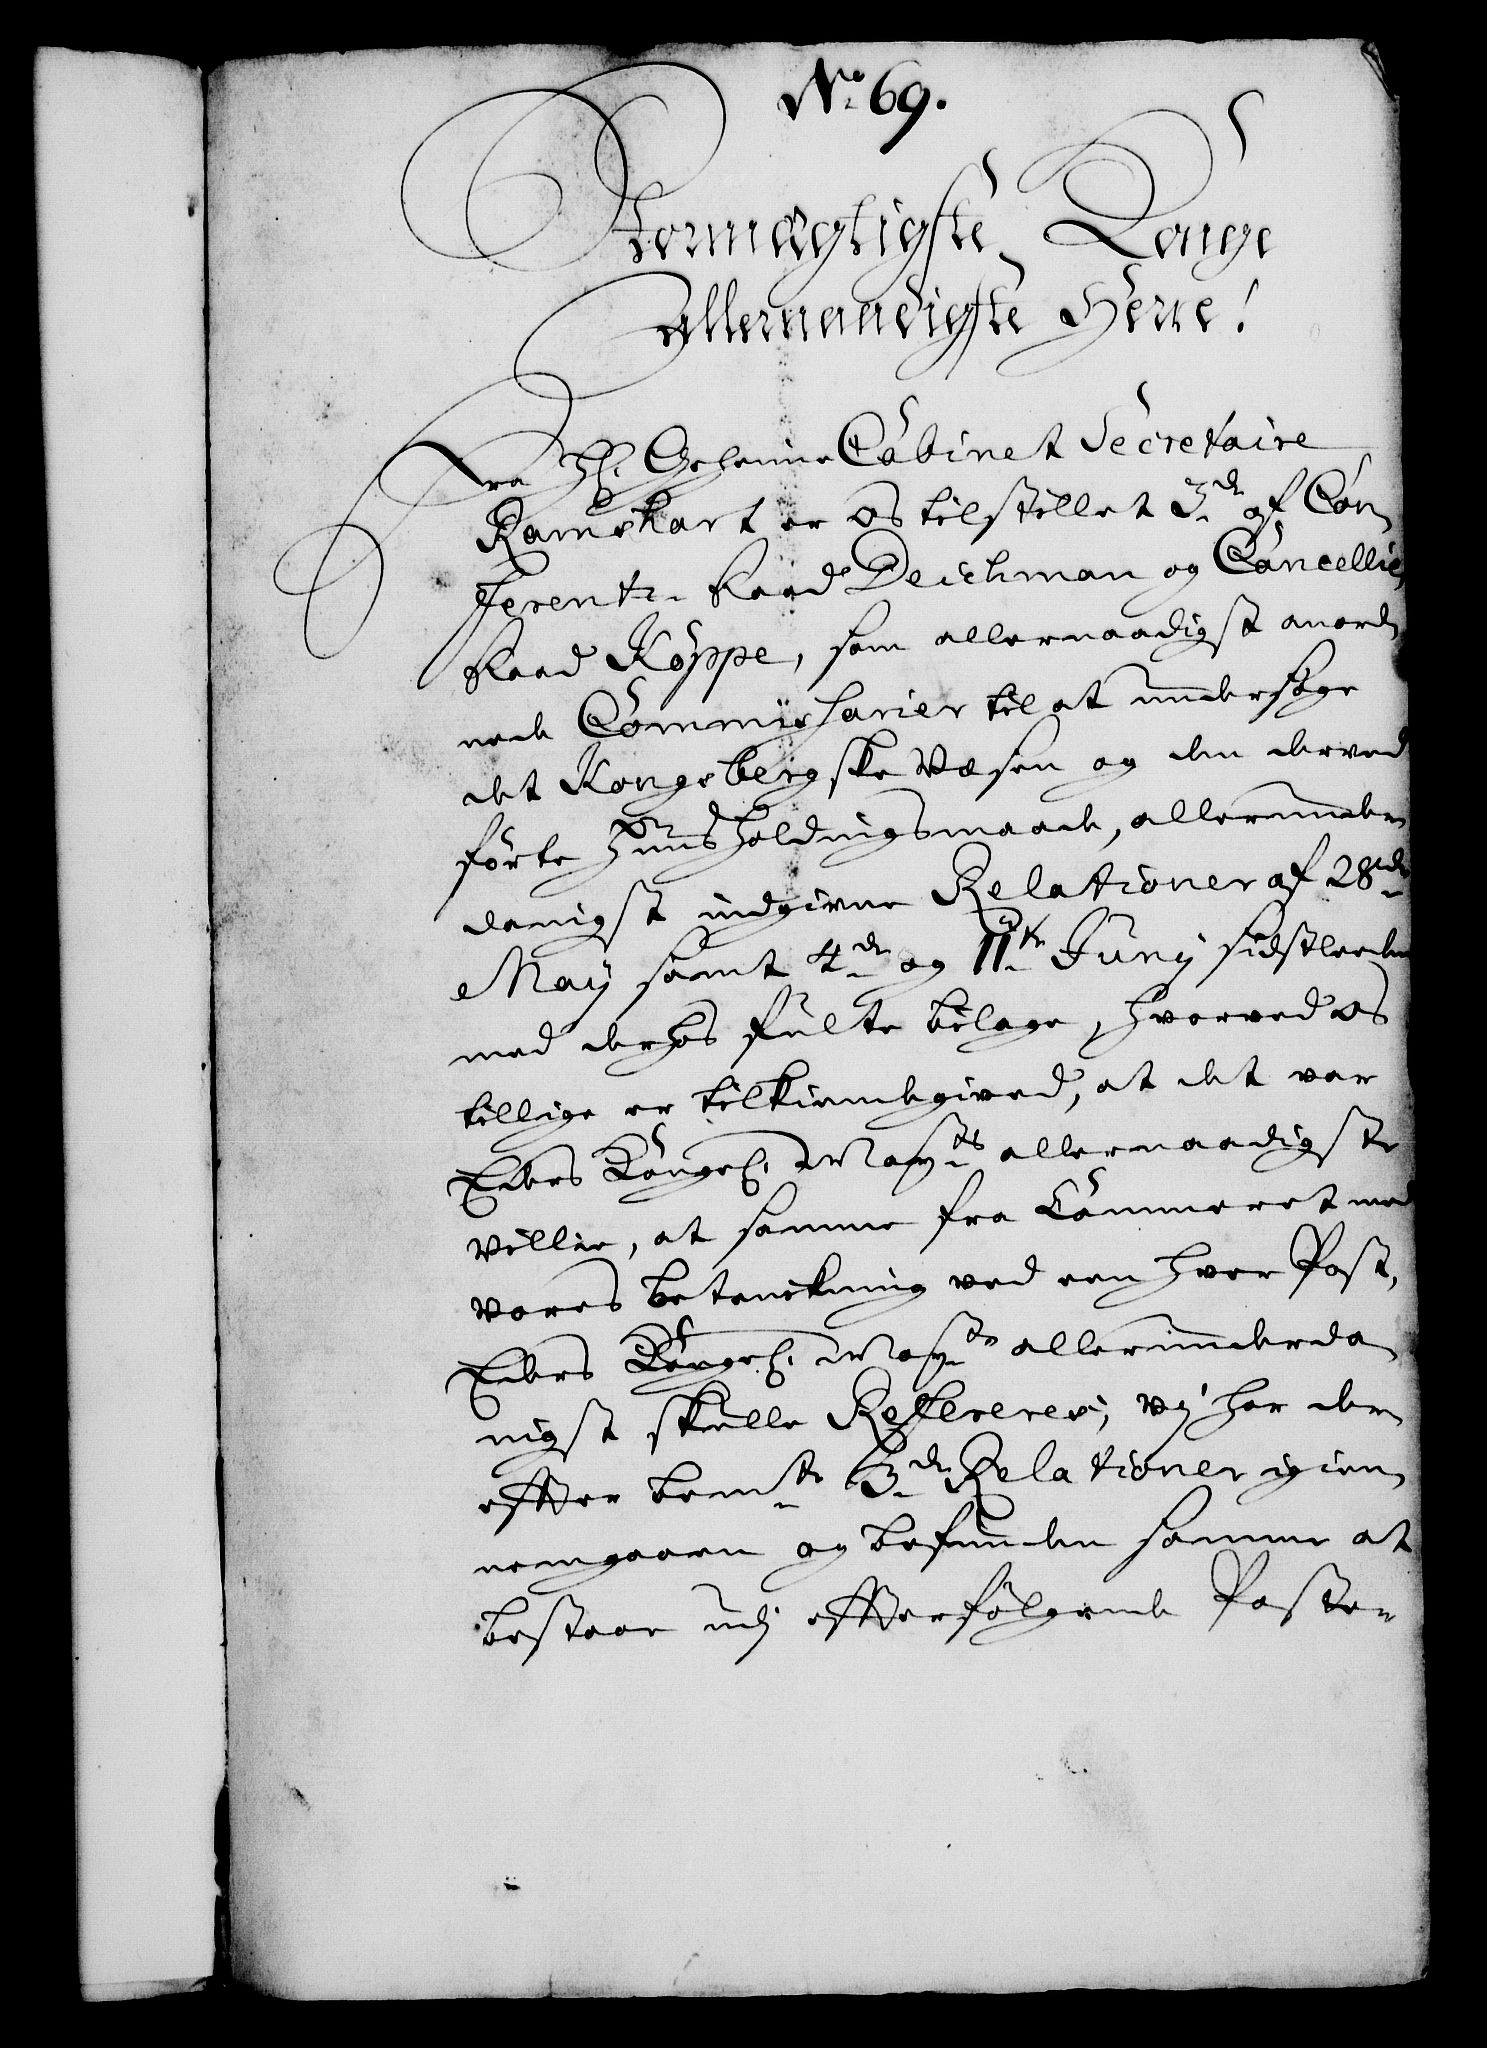 No 69.
Stormægtigste Konge
Allernaadigste Herre!
Fra Hr. Geheime Cabinet Secretaire
Ramshart er os tilstillet 3de af Con-
ferentz-Raad Deichman og Cancellie-
Raad Köppe, som allernaadigst anord-
nede Commissarier til at undersøge
det Kongsbergske Væsen og den derved
førte Huusholdningsmaade, allerunder-
danigst indgivne Relationer af 28de
May samt 4de og 11te Junij sidstleeden
med derhos fulte bilage, hvorved os
tillige er tilkiendegived, at det var
Eders Kongel. Mayts allernaadigste
villie, at samme fra Cammeret med
vores betenckning ved een hver Post,
Eders Kongel. Mayts allerunderda-
nigst skulle Refereres; vj har der-
effter bemte 3de Relationer igien-
nemgaaen og befunden samme at
bestaae udj effterfølgende Poster